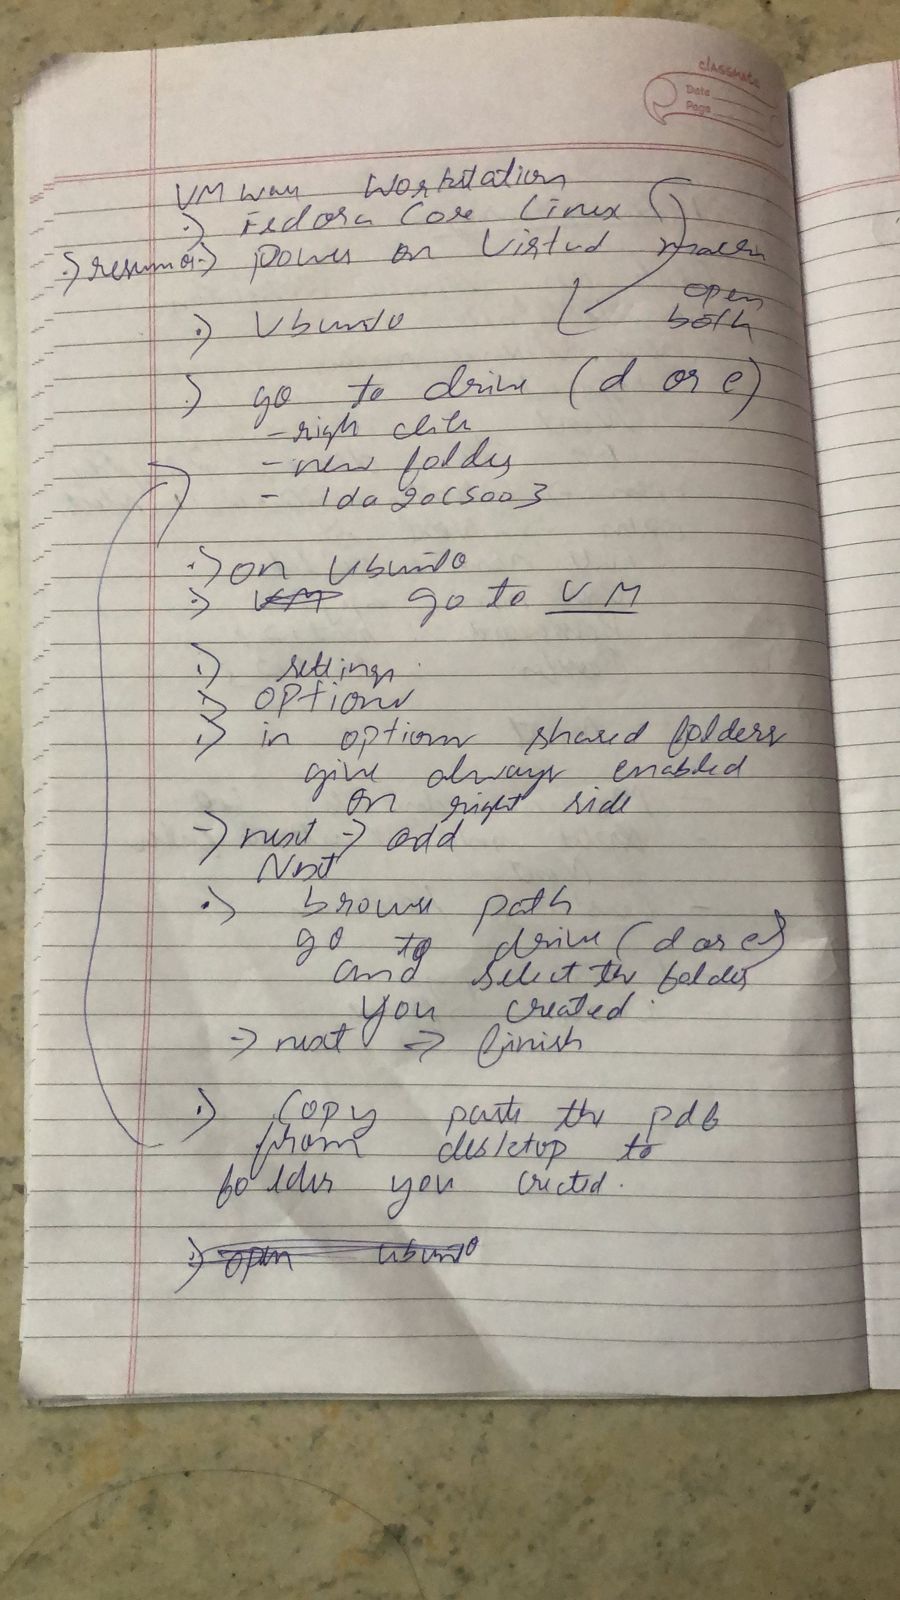 classmate
Date
Page
VMwan Workstation
.) Fedora Core Linux
.) resume .) power on Virtual
open
.) Ubundo both
.) go to drive (d or e)
- righ clik
- new folder
- 1da20CS003
.) on Ubundo
.) VM go to VM
.) settings.
.) options
.) in options shared folders
give always enabled
on right side
-) next -) add
Next
.) browse path
go to drive (d or e)
and select the folder
you created.
-) next => finish
.) Copy paste the pdf
from desktop to
folder you created.
.) open ubundo